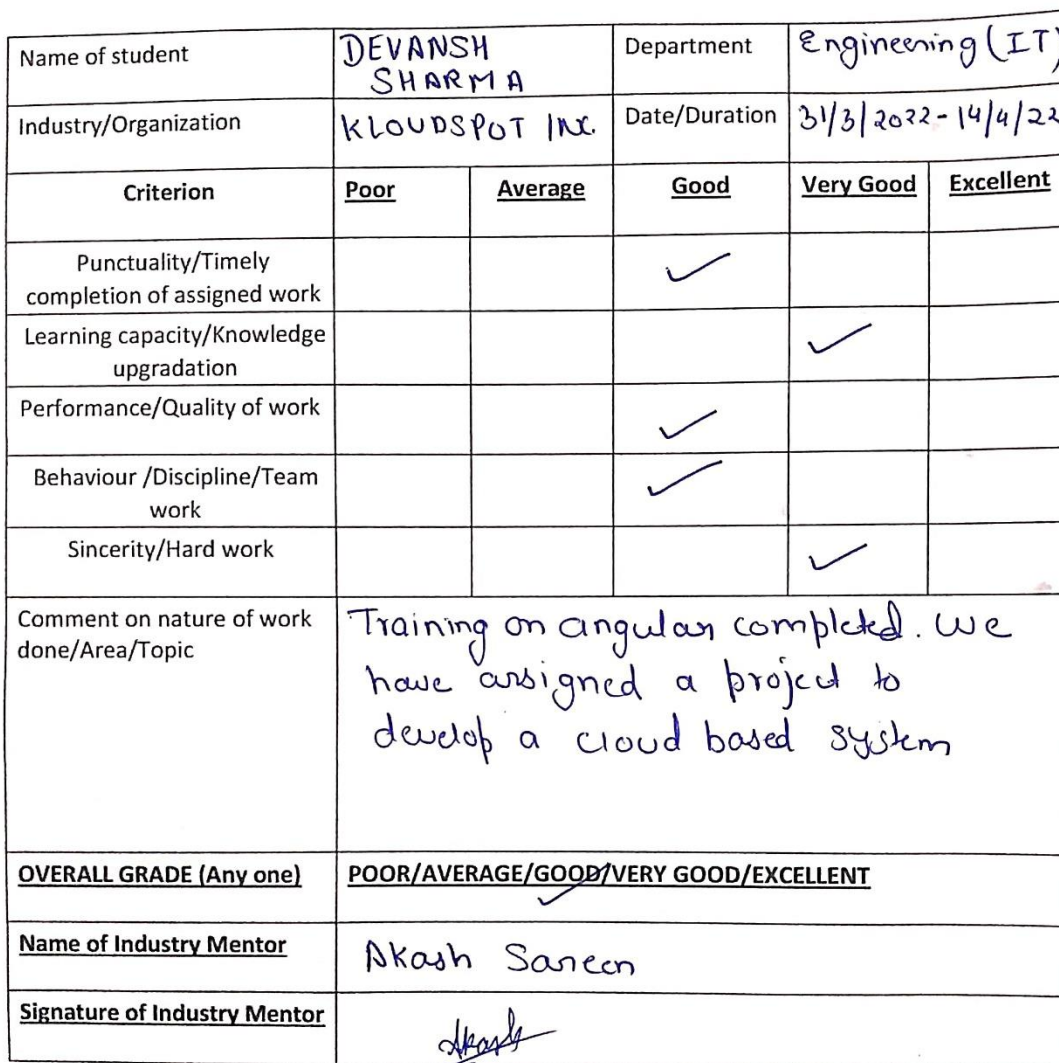 Name of student DEVANSH Department Engineering (IT)
SHARMA
Industry/Organization KLOUDSPOT INC. Date/Duration 31/3/2022 - 14/4/22
Criterion Poor Average Good Very Good Excellent
Punctuality/Timely
completion of assigned work
Learning capacity/Knowledge
upgradation
Performance/Quality of work
Behaviour /Discipline/Team
work
Sincerity/Hard work
Comment on nature of work
done/Area/Topic
Training on angular completed. We
have assigned a project to
develop a cloud based system
OVERALL GRADE (Any one) POOR/AVERAGE/GOOD/VERY GOOD/EXCELLENT
Name of Industry Mentor Akash Sareen
Signature of Industry Mentor Akash